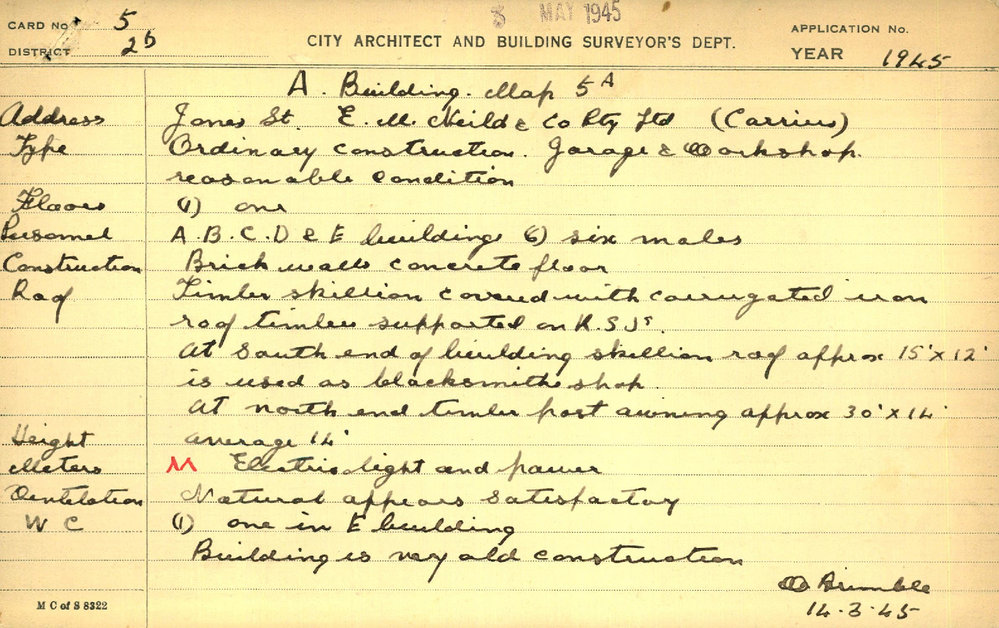 CARD No. 5
3 MAY 1945
APPLICATION No.
DISTRICT 2b
CITY ARCHITECT AND BUILDING SURVEYOR'S DEPT.
YEAR 1945
A. Building. Map 5A
Address Jones St. E. M. Neild & Co Pty Ltd (Carriers)
Type Ordinary construction. Garage & Workshop.
reasonable condition
Floors (1) one
Personnel A.B.C.D & E buildings (6) six males
Construction Brick walls concrete floor
Roof Timber skillion covered with corrugated iron
roof timbers supported on R.S.Js.
At South end of building skillion roof approx 15' x 12'
is used as blacksmiths shop.
At north end timber post awning approx 30' x 14'
Height average 14'
Meters M Electric light and power
Ventilation Natural appears satisfactory
W C (1) one in E building
Building is very old construction
Brimble
M C of S 8322
14.3.45